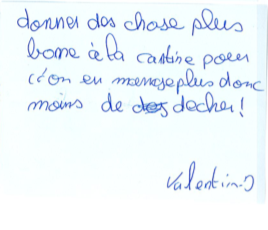 donner des chose plus
bonne à la cantine pour
c'on en mange plus donc
moins de dechet!
Valentin.D